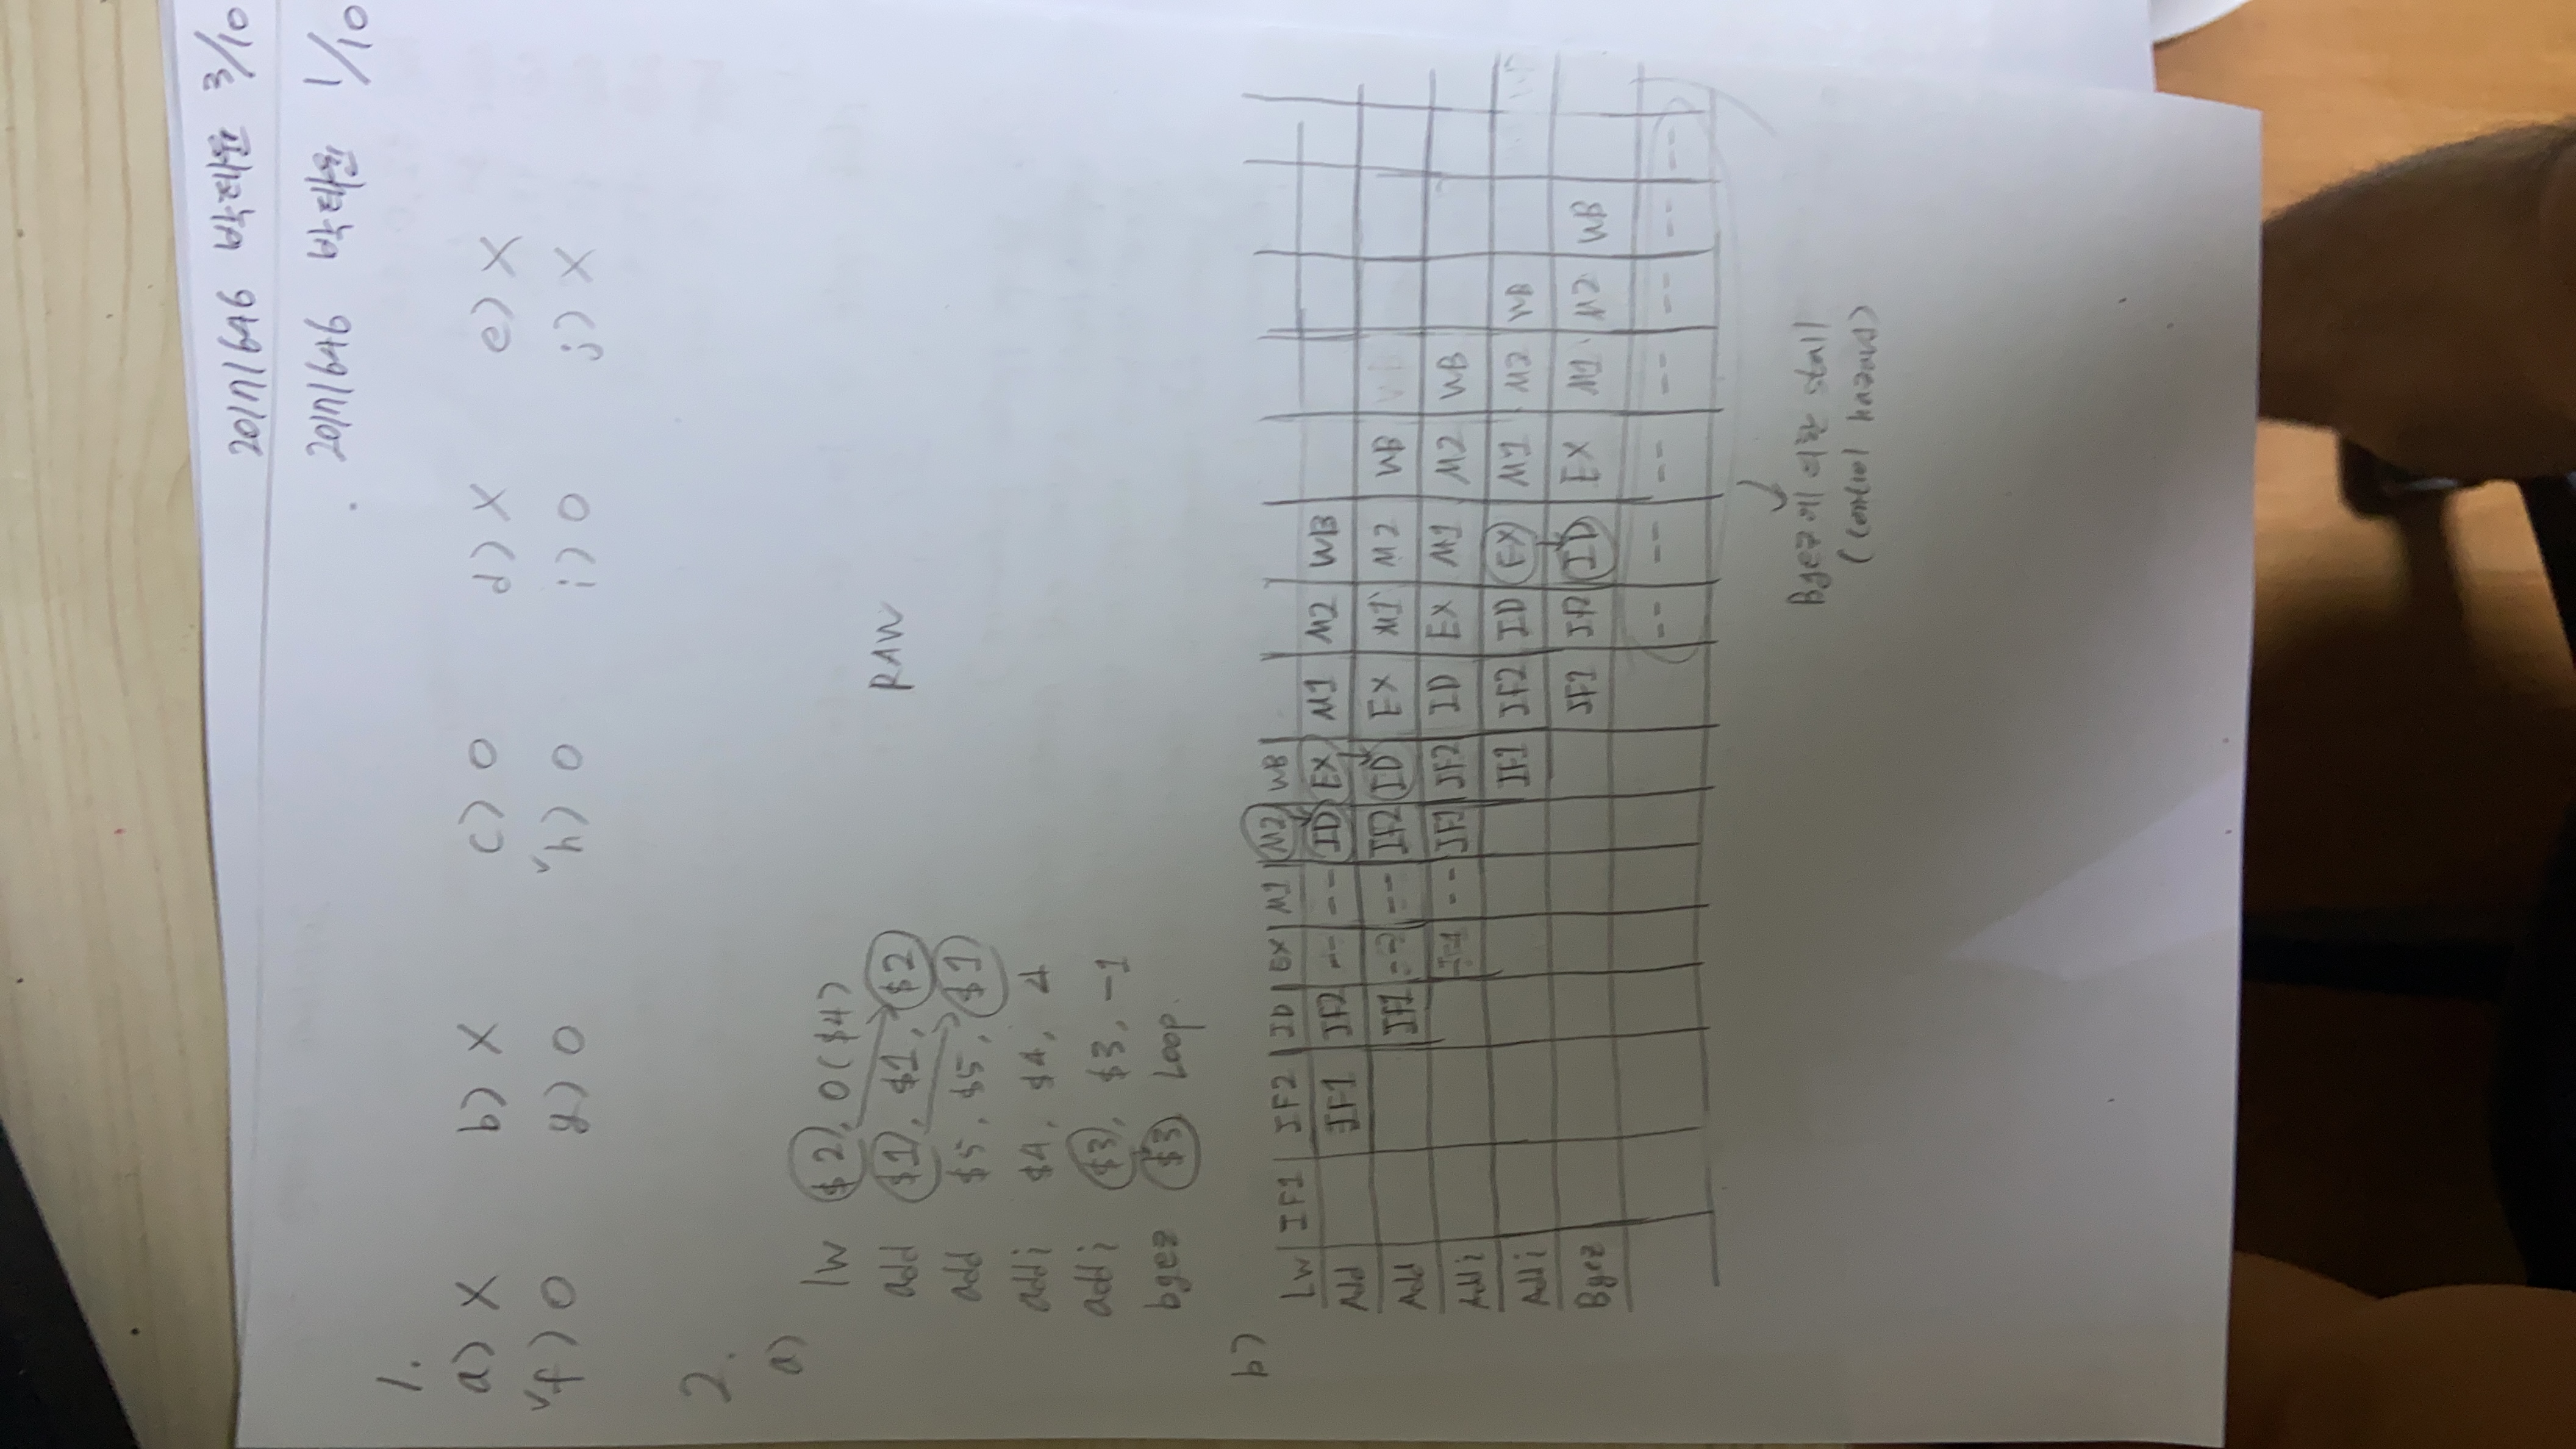 20171646 박태윤 3/10
20171646 박태윤 1/10
1.
a) X b) X c) O d) X e) X
✓f) O g) O ✓h) O i) O j) X
2.
a)
lw $2, 0($4)
add $1, $1, $2 RAW
add $5, $5, $1
addi $4, $4, 4
addi $3, $3, -1
bgez $3 Loop.
b)
Lw IF1 IF2 ID EX M1 M2 WB
Add IF1 IF2 -- -- ID EX M1 M2 WB
Add IF1 -- -- IF2 ID EX M1 M2 WB
Addi -- IF1 IF2 ID EX M1 M2 WB
Addi IF1 IF2 ID EX M1 M2 WB
Bgez IF1 IF2 ID EX M1 M2 WB
-- -- -- -- -- -- --
Bgez에 의한 stall
(control hazard)